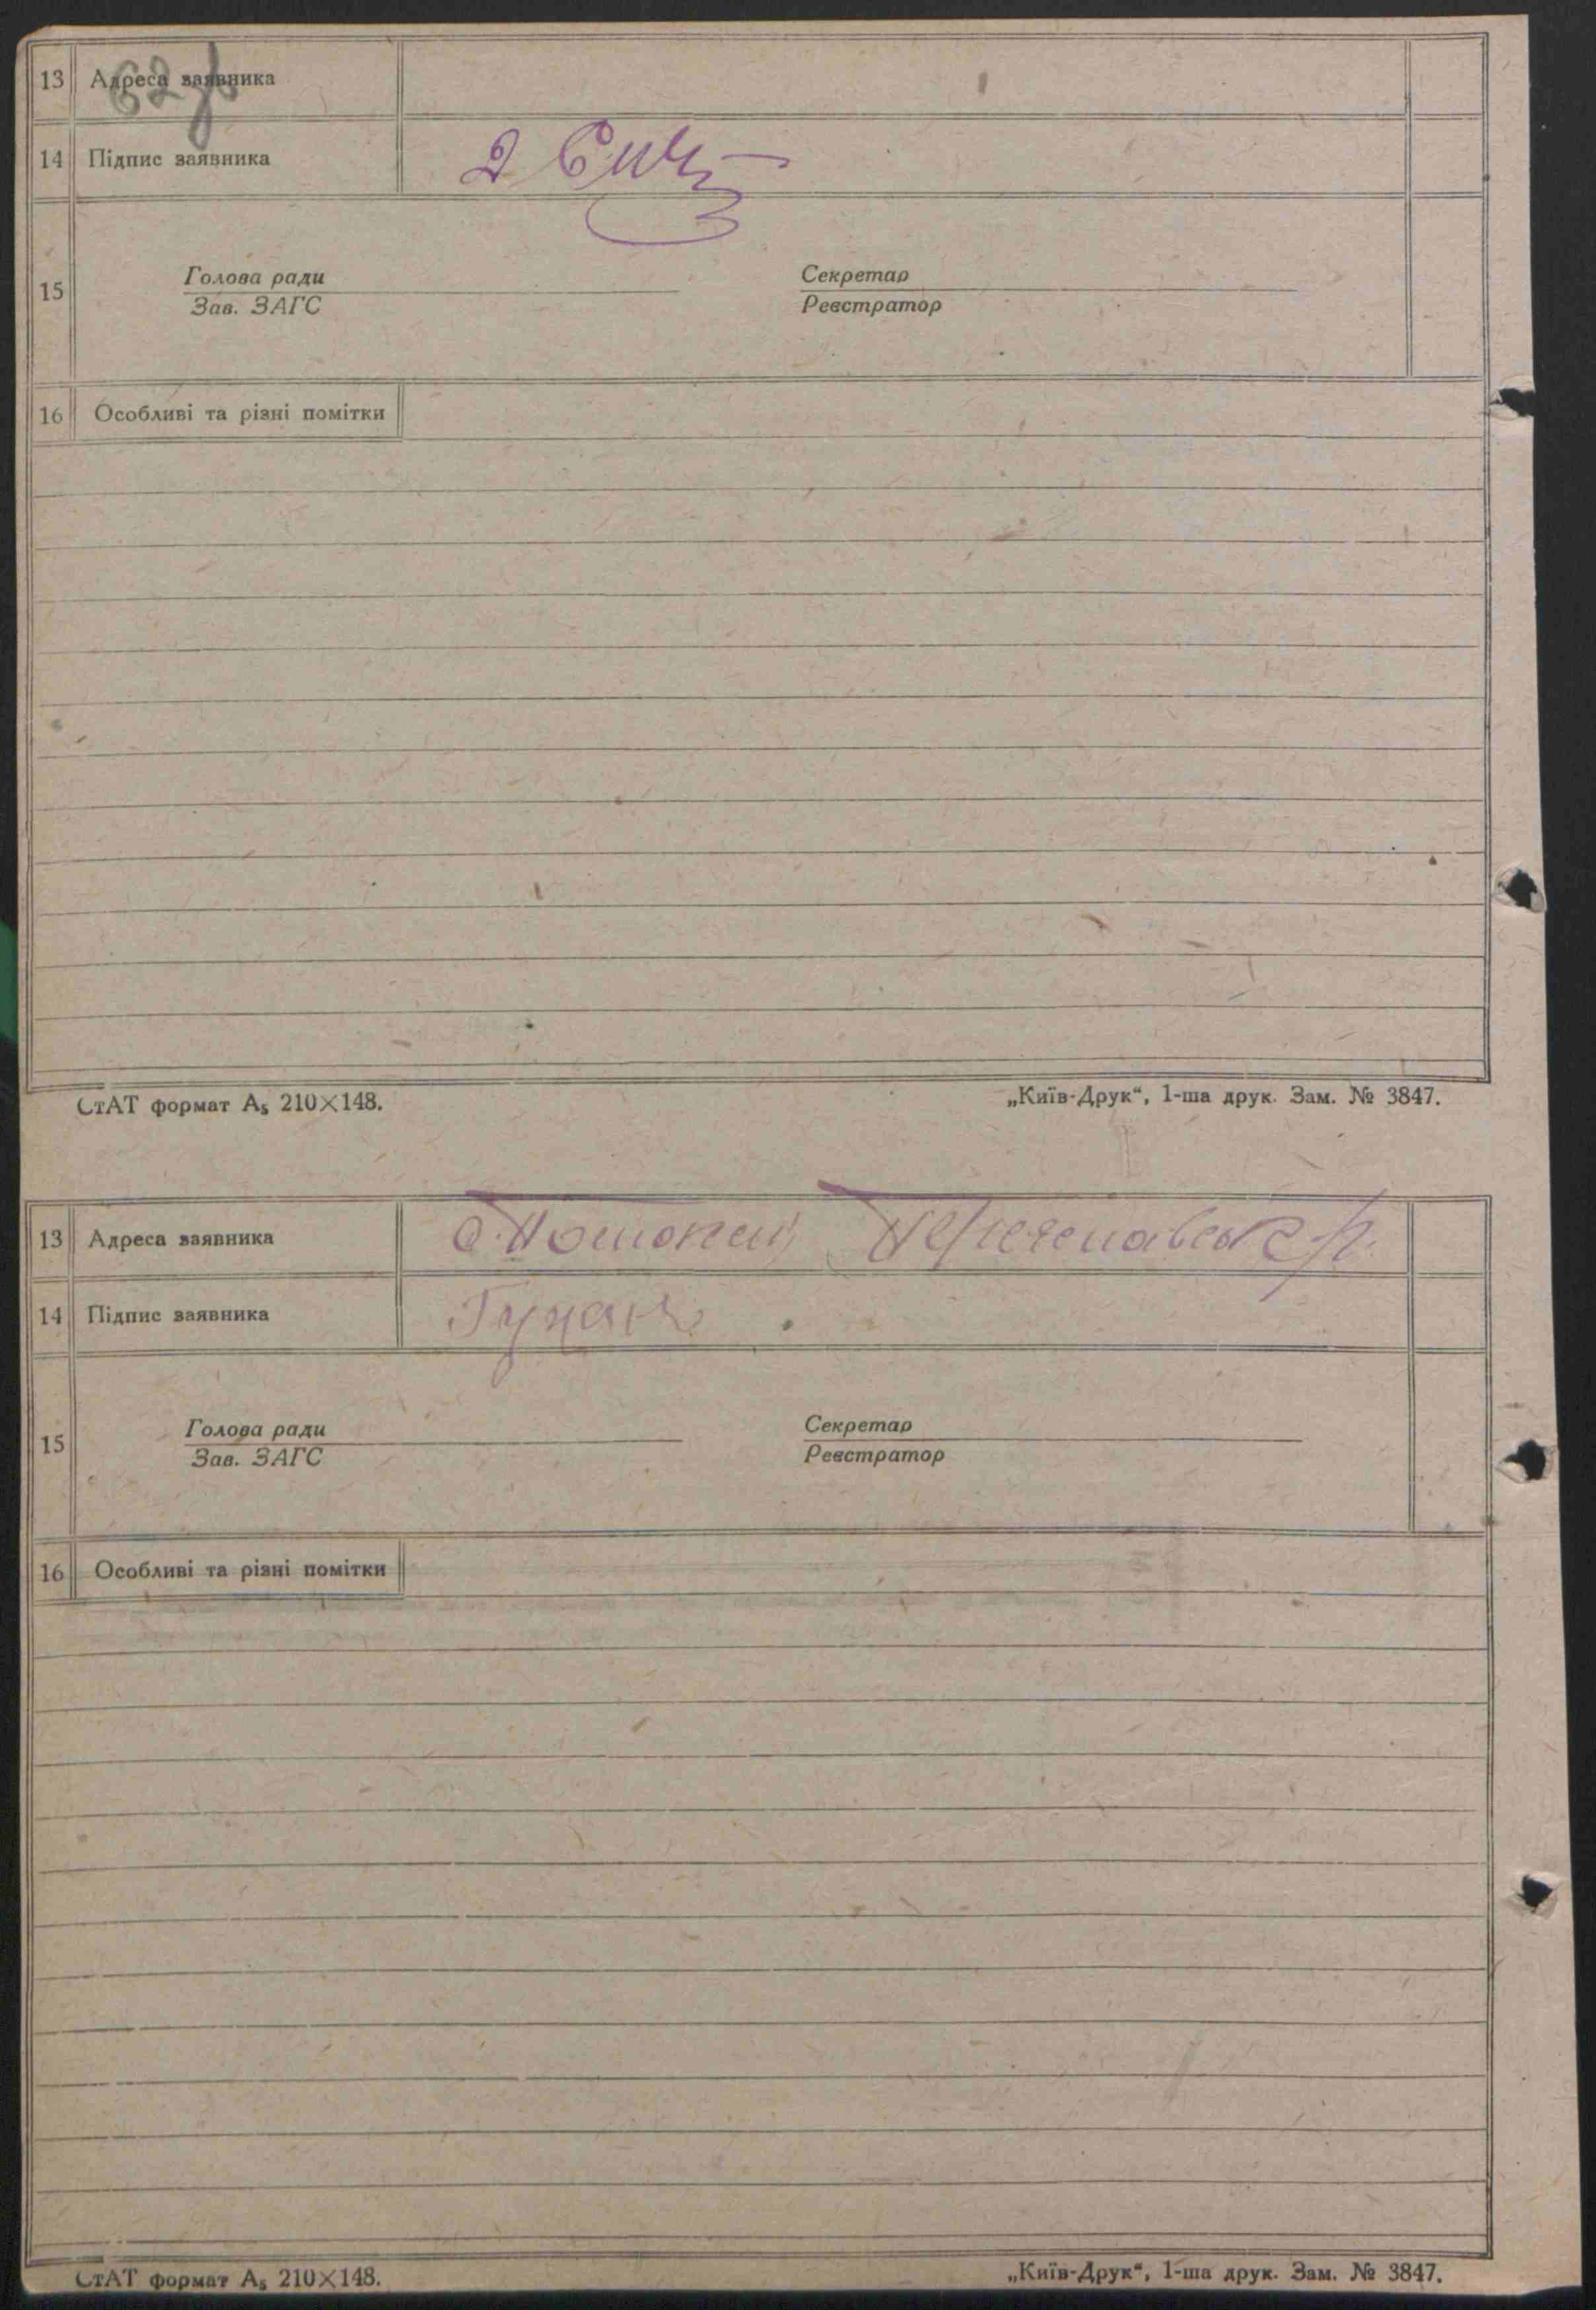 13 Адреса заявника
14 Підпис заявника
15 Голова ради Секретар
Зав. ЗАГС Реєстратор
16 Особливі та різні помітки
СтАТ формат А₅ 210×148. „Київ-Друк“, 1-ша друк. Зам. № 3847.
13 Адреса заявника
14 Підпис заявника
15 Голова ради Секретар
Зав. ЗАГС Реєстратор
16 Особливі та різні помітки
СтАТ формат А₅ 210×148. „Київ-Друк“, 1-ша друк. Зам. № 3847.